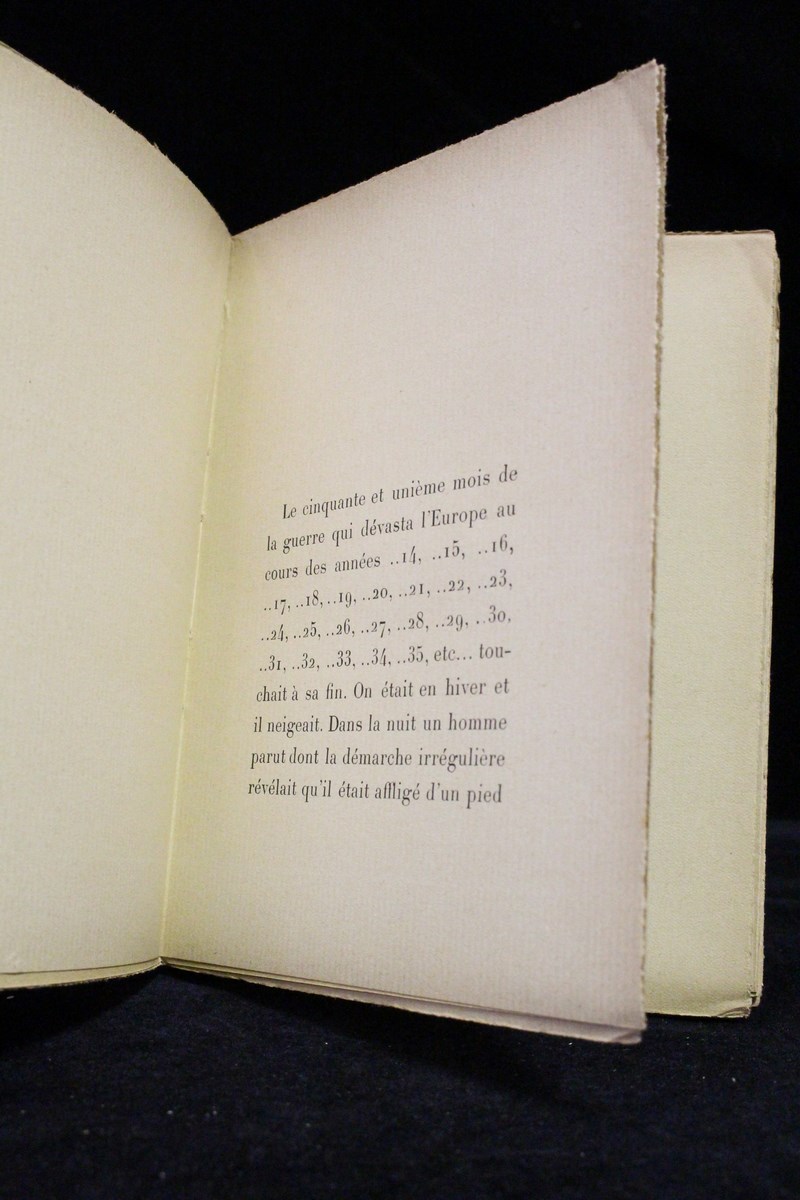 Le cinquante et unième mois de
la guerre qui dévasta l'Europe au
cours des années ..14, ..15, ..16,
..17, ..18, ..19, ..20, ..21, ..22, ..23,
..24, ..25, ..26, ..27, ..28, ..29, ..30,
..31, ..32, ..33, ..34, ..35, etc... tou-
chait à sa fin. On était en hiver et
il neigeait. Dans la nuit un homme
parut dont la démarche irrégulière
révélait qu'il était affligé d'un pied